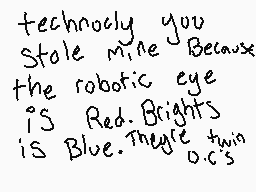 technocly you
stole mine Because
the robotic eye
is Red. Brights
is Blue. They're twin
O.C's